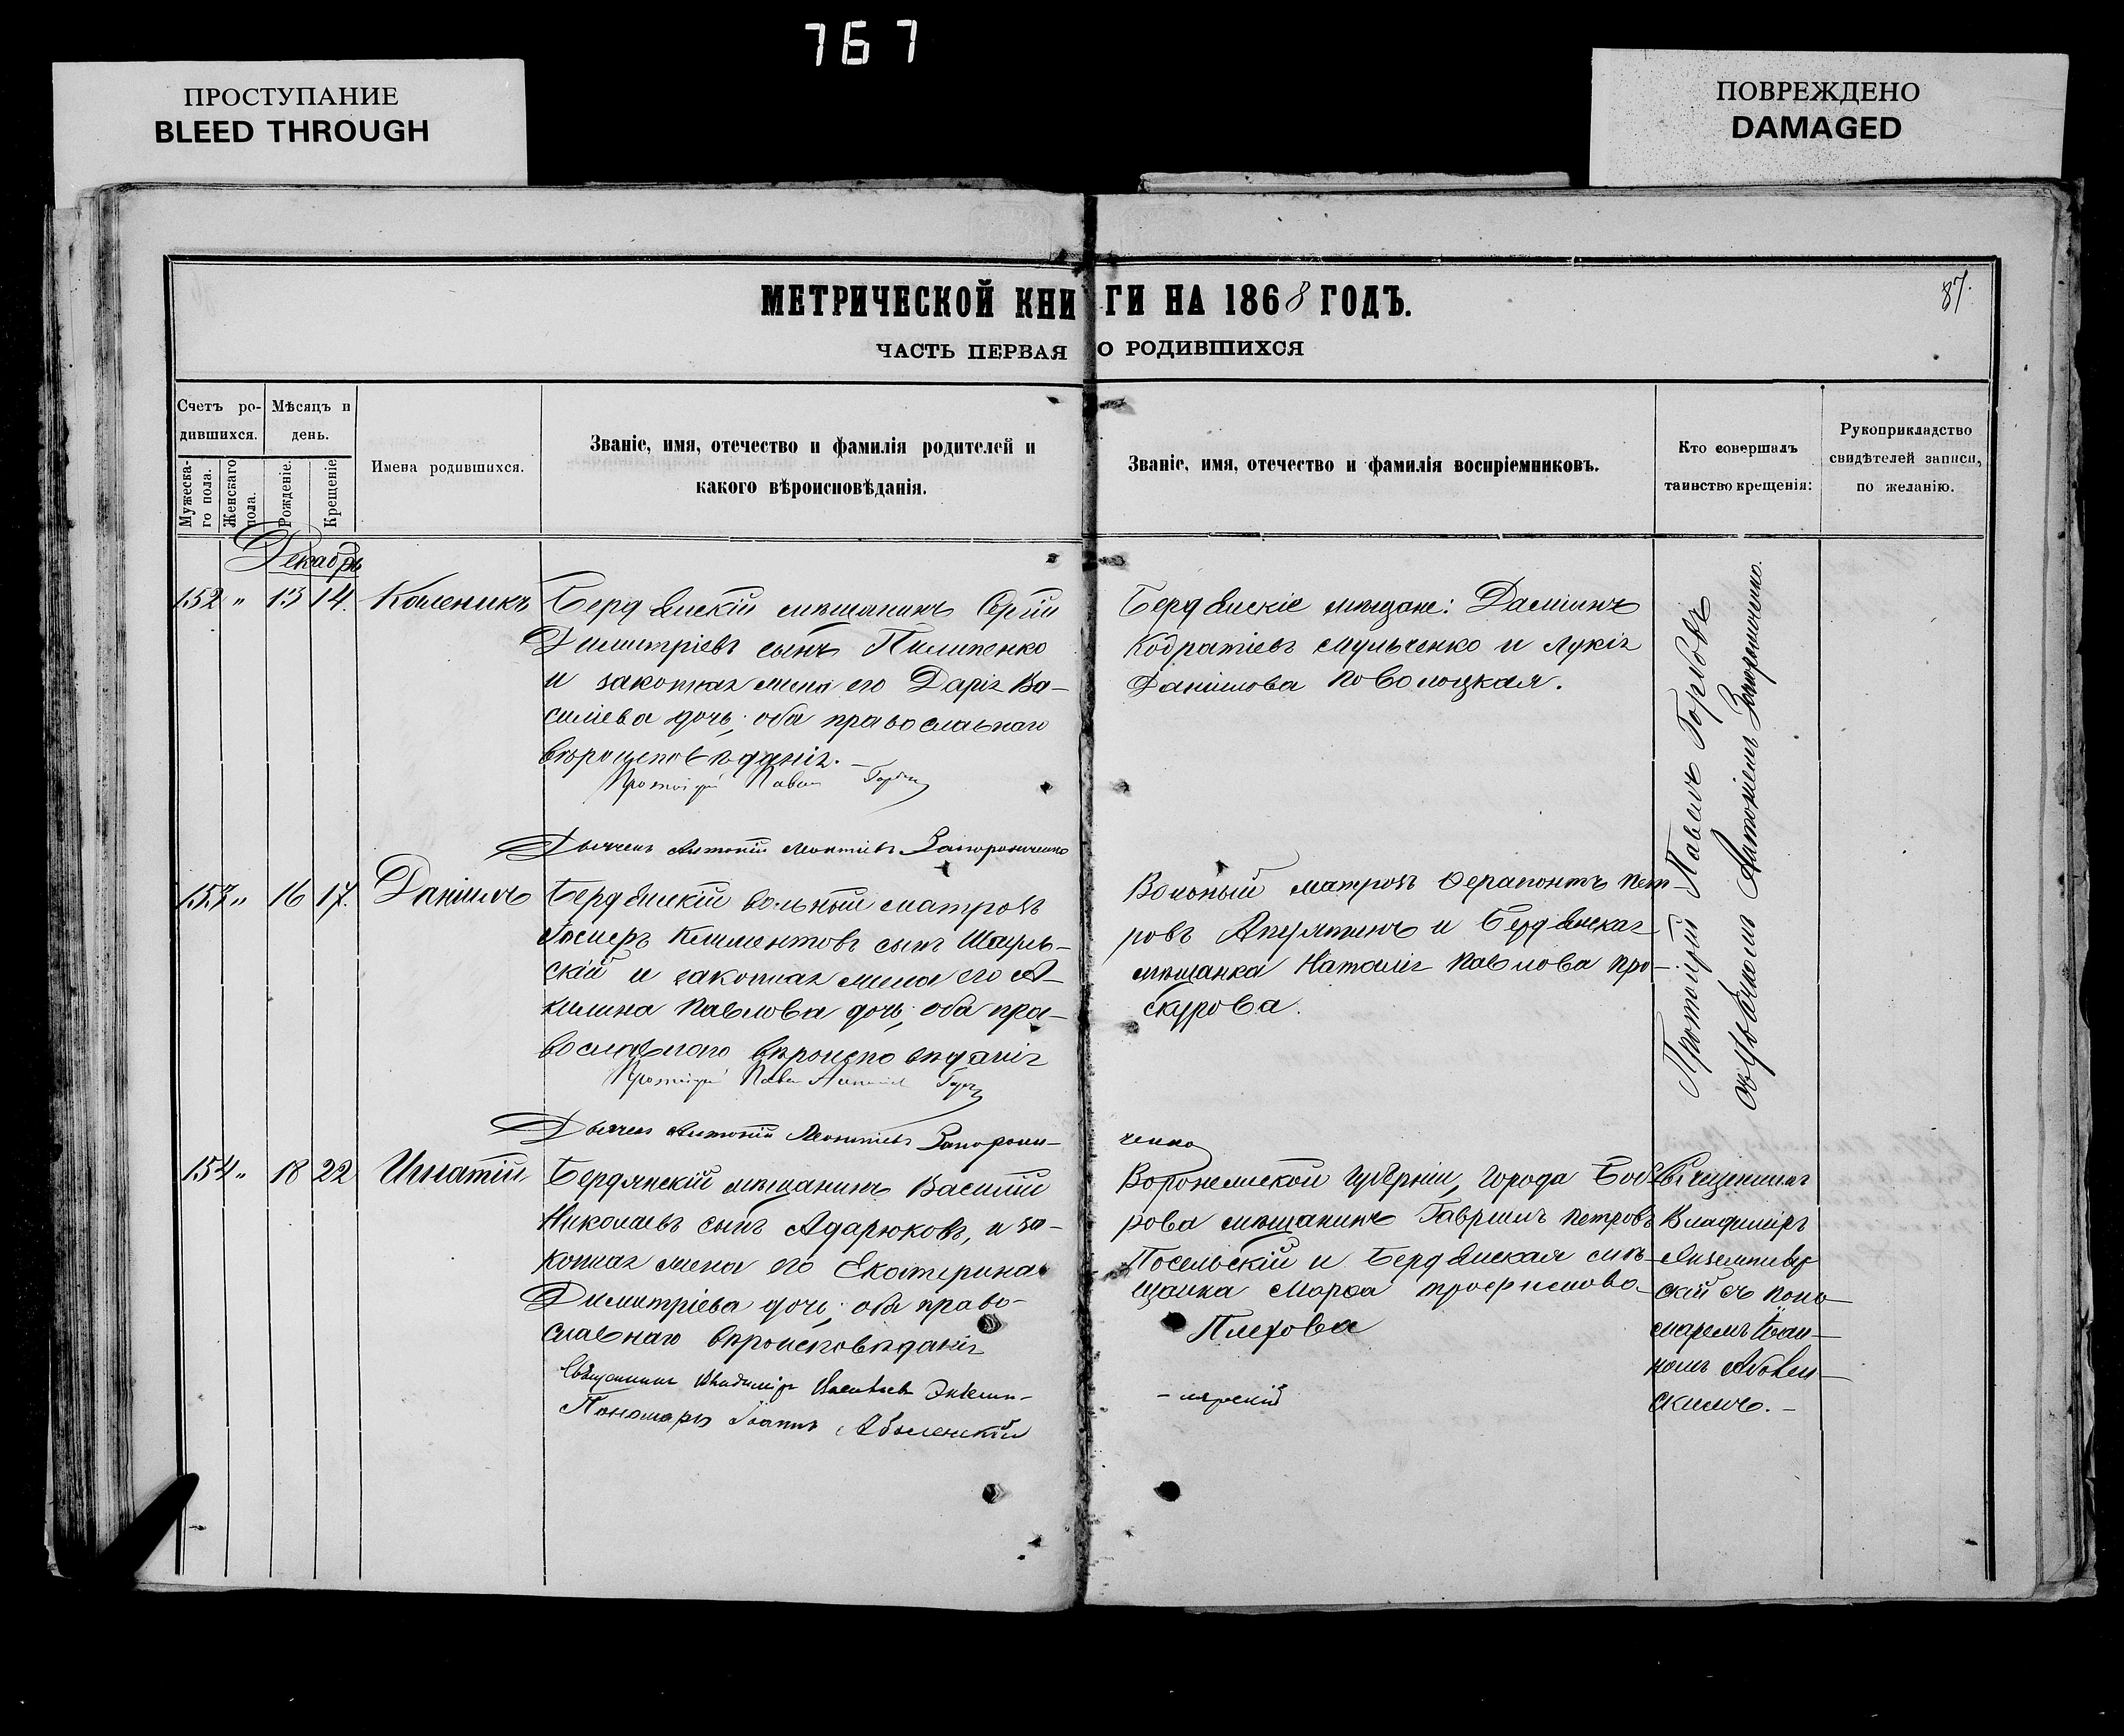 767
ПРОСТУПАНИЕ
BLEED THROUGH
ПОВРЕЖДЕНО
DAMAGED
87.
МЕТРИЧЕСКОЙ КНИГИ НА 1868 ГОДЪ.
ЧАСТЬ ПЕРВАЯ О РОДИВШИХСЯ
Счетъ ро-
дившихся.
Мужеска-
го пола.
Женскаго
пола.
Мѣсяцъ и
день.
Рожденіе.
Крещеніе
Имена родившихся.
Званіе, имя, отечество и фамилія родителей и
какого вѣроисповѣданія.
Званіе, имя, отечество и фамилія воспріемниковъ.
Кто совершалъ
таинство крещенія:
Рукоприкладство
свидѣтелей записи,
по желанію.
Декабрь
152 " 13 14. Каленикъ
Бердянскій мѣщанинъ Сергій
Димитріевъ сынъ Пилипенко
и законная жена его Дарія Ва-
силіева дочь; оба православнаго
вѣроисповѣданія.
Протоіерей Павелъ
Дьячекъ Антоній Леонтіевъ Запорожченко
Бердянскіе мѣщане: Даміинъ
Кодратіевъ Мульченко и Лукія
Даніилова Поволоцкая.
Протоіерей Павелъ Горбовъ
съ дьячкомъ Антоніемъ Запорожченко.
153 " 16 17. Даніилъ
Бердянскій вольный матросъ
Климентовъ сынъ
скій и законная жена его А-
килина Павлова дочь; оба пра-
вославнаго вѣроисповѣданія
Протоіерей Павелъ
Дьячекъ Антоній Леонтіевъ Запорож-
ченко
Вольный матросъ Ѳерапонтъ Пет-
ровъ Апурятинъ и Бердянская
мѣщанка Наталія Павлова Про-
скурова.
154 " 18 22 Игнатій
Бердянскій мѣщанинъ Василій
Николаевъ сынъ Адарюковъ, и за-
конная жена его Екатерина
Димитріева дочь; оба право-
славнаго вѣроисповѣданія
Священникъ Владиміръ
Пономарь Іоаннъ
Воронежской губерніи, города Боб-
рова мѣщанинъ Гавріилъ Петровъ
Посельскій и Бердянская мѣ-
щанка Марѳа Трофимова
Плехова
Священникъ
Владиміръ
скій съ поно-
маремъ Іоан-
номъ
скимъ.